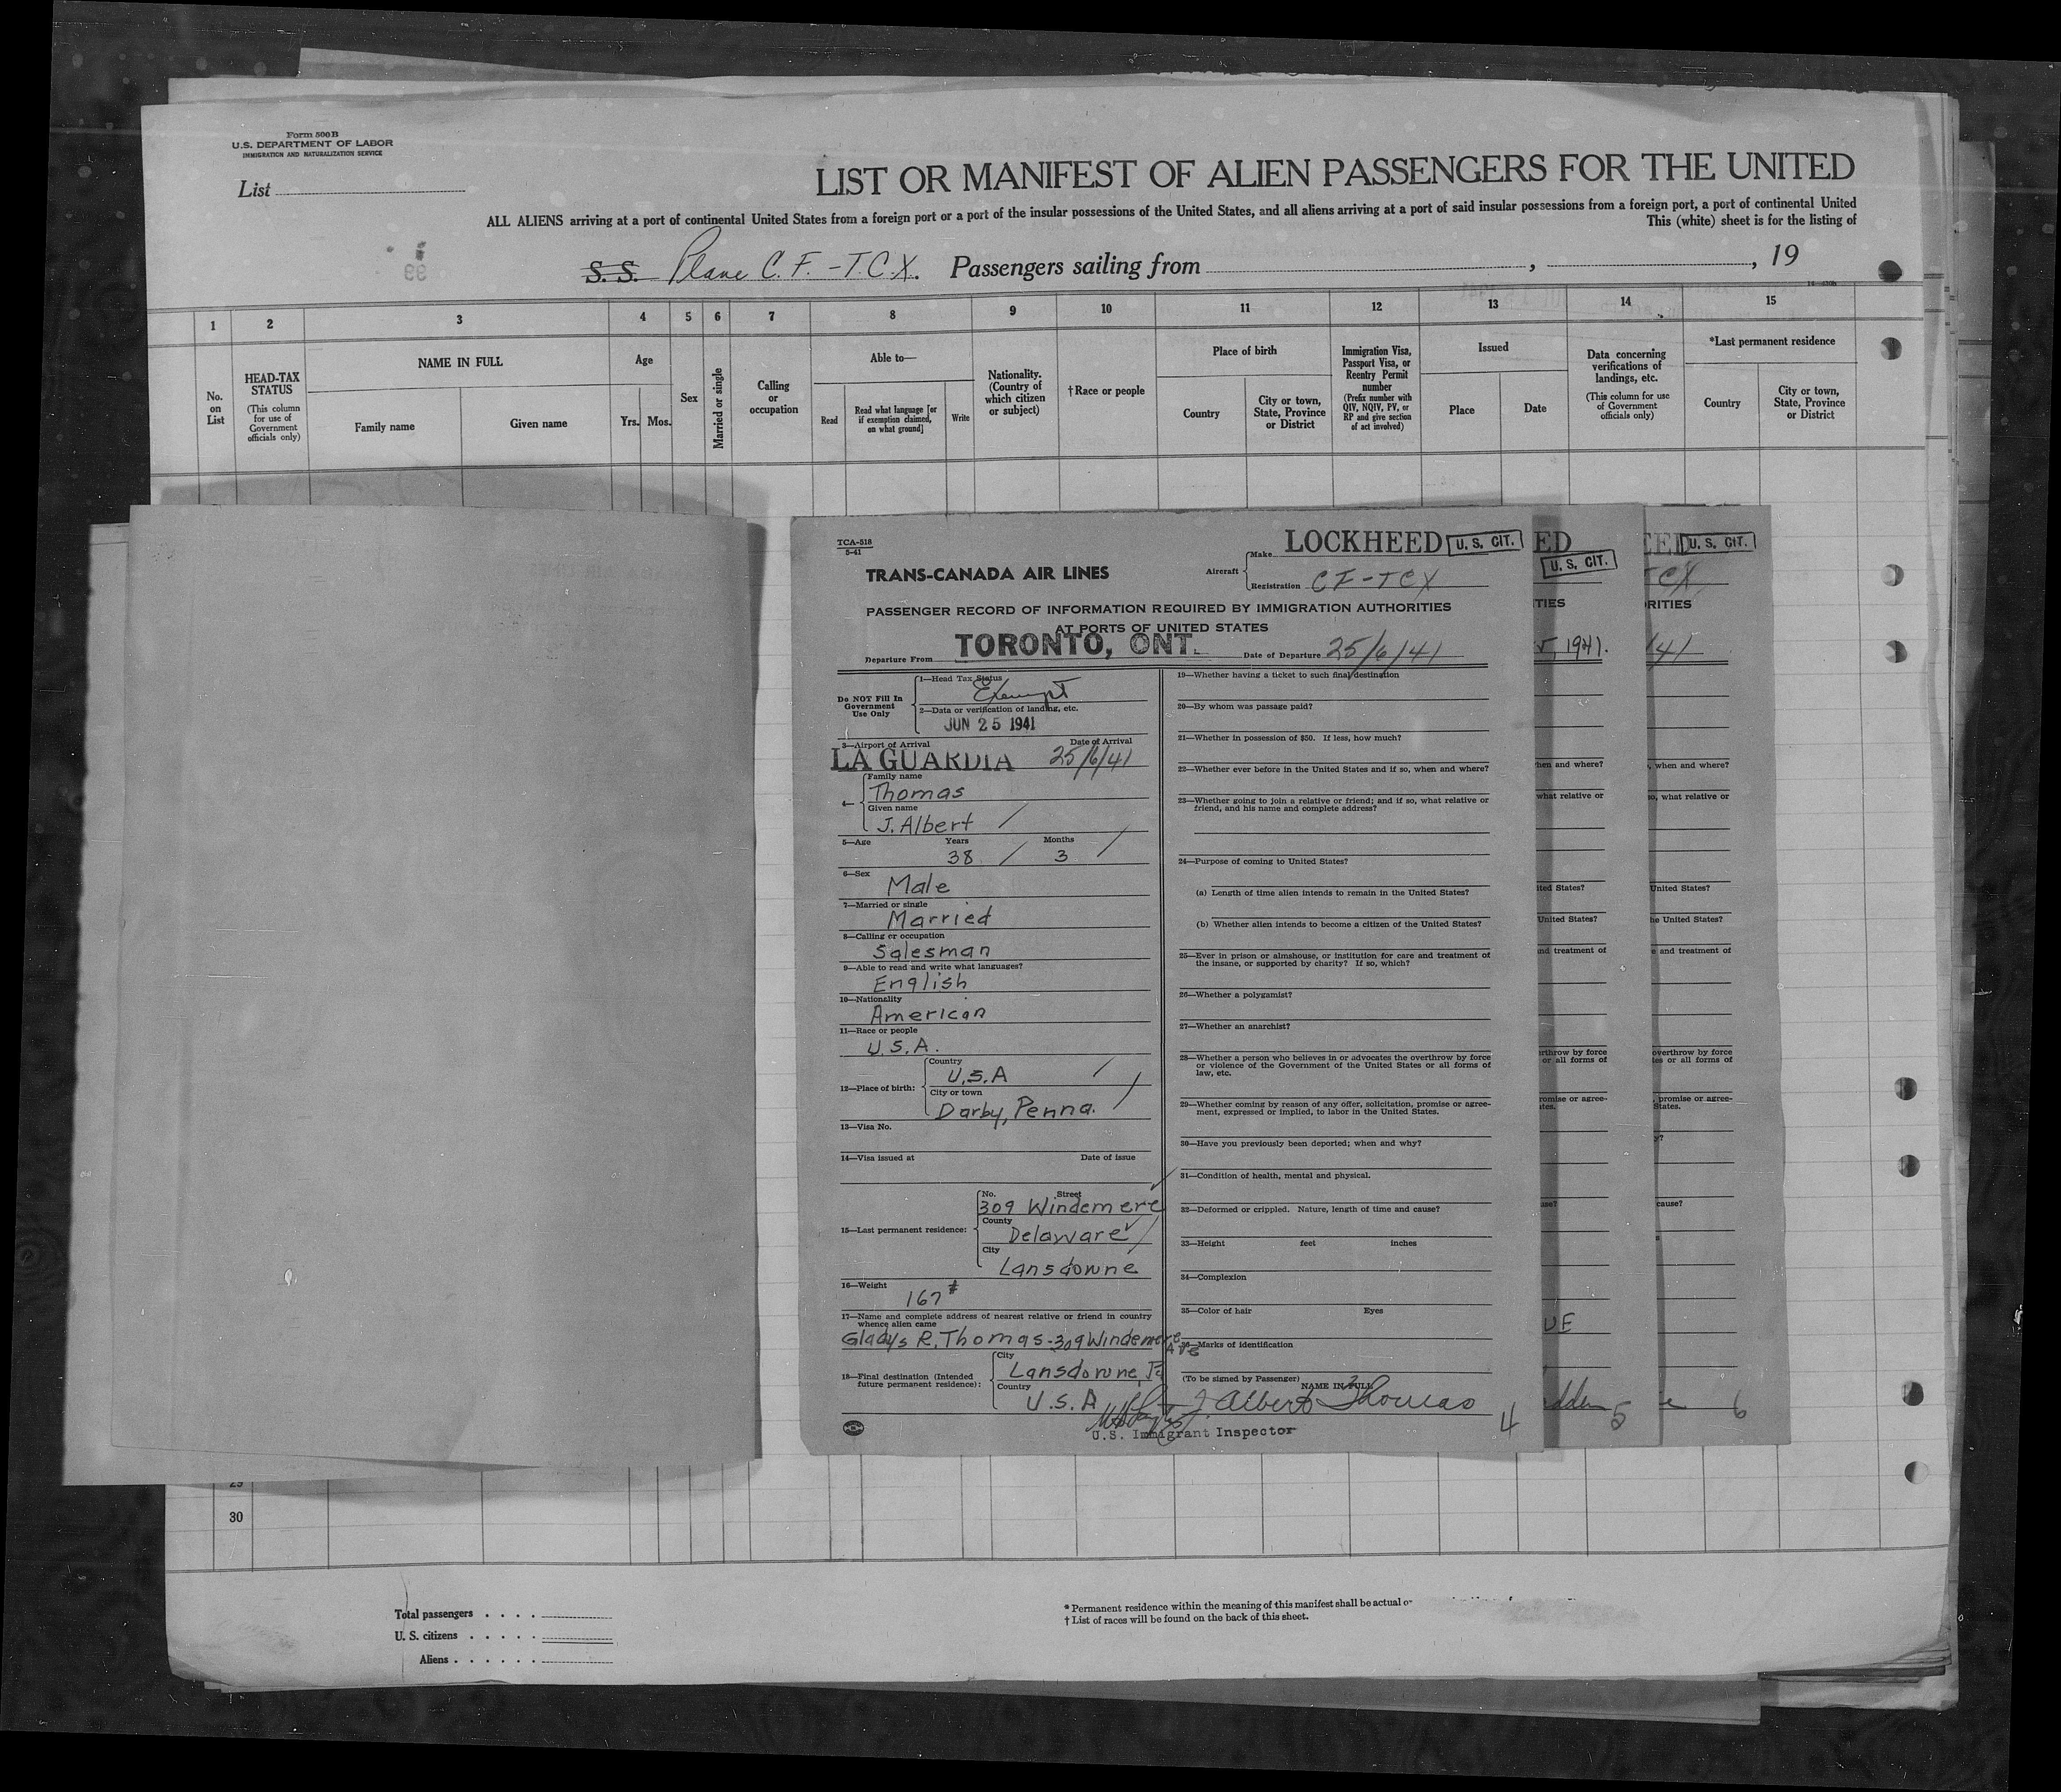 Form 500B
U.S. DEPARTMENT OF LABOR
IMMIGRATION AND NATURALIZATION SERVICE
List
LIST OR MANIFEST OF ALIEN PASSENGERS FOR THE UNITED
ALL ALIENS arriving at a port of continental United States from a foreign port or a port of the insular possessions of the United States, and all aliens arriving at a port of said insular possessions from a foreign port, a port of continental United
This (white) sheet is for the listing of
S. S. Plane C.F.-T.C.X. Passengers sailing from , , 19
1 2 3 4 5 6 7 8 9 10 11 12 13 14 15
No. on List
HEAD-TAX STATUS
(This column for use of Government officials only)
NAME IN FULL
Family name
Given name
Age
Yrs. Mos.
Sex
Married or single
Calling or occupation
Able to—
Read
Read what language [or if exemption claimed, on what ground]
Write
Nationality. (Country of which citizen or subject)
†Race or people
Place of birth
Country
City or town, State, Province or District
Immigration Visa, Passport Visa, or Reentry Permit number
(Prefix number with QIV, NQIV, PV, or RP and give section of act involved)
Issued
Place
Date
Data concerning verifications of landings, etc.
(This column for use of Government officials only)
*Last permanent residence
Country
City or town, State, Province or District
TCA-518
5-41
TRANS-CANADA AIR LINES
Aircraft
Make LOCKHEED U. S. CIT.
Registration CF-TCX
PASSENGER RECORD OF INFORMATION REQUIRED BY IMMIGRATION AUTHORITIES
AT PORTS OF UNITED STATES
Departure From TORONTO, ONT. Date of Departure 25/6/41
Do NOT Fill In
Government
Use Only
1—Head Tax Status
Exempt
2—Data or verification of landing, etc.
JUN 25 1941
3—Airport of Arrival Date of Arrival
LA GUARDIA 25/6/41
4—
Family name
Thomas
Given name
J. Albert
5—Age Years Months
38 3
6—Sex
Male
7—Married or single
Married
8—Calling or occupation
Salesman
9—Able to read and write what languages?
English
10—Nationality
American
11—Race or people
U.S.A.
12—Place of birth:
Country
U.S.A
City or town
Darby, Penna.
13—Visa No.
14—Visa issued at Date of issue
15—Last permanent residence:
No. Street
309 Windemere
County
Delaware
City
Lansdowne
16—Weight
167#
17—Name and complete address of nearest relative or friend in country
whence alien came
Gladys R. Thomas-309 Windemere
Ave
18—Final destination (Intended
future permanent residence):
City
Lansdowne, Pa
Country
U.S.A
19—Whether having a ticket to such final destination
20—By whom was passage paid?
21—Whether in possession of $50. If less, how much?
22—Whether ever before in the United States and if so, when and where?
23—Whether going to join a relative or friend; and if so, what relative or
friend, and his name and complete address?
24—Purpose of coming to United States?
(a) Length of time alien intends to remain in the United States?
(b) Whether alien intends to become a citizen of the United States?
25—Ever in prison or almshouse, or institution for care and treatment of
the insane, or supported by charity? If so, which?
26—Whether a polygamist?
27—Whether an anarchist?
28—Whether a person who believes in or advocates the overthrow by force
or violence of the Government of the United States or all forms of
law, etc.
29—Whether coming by reason of any offer, solicitation, promise or agree-
ment, expressed or implied, to labor in the United States.
30—Have you previously been deported; when and why?
31—Condition of health, mental and physical.
32—Deformed or crippled. Nature, length of time and cause?
33—Height feet inches
34—Complexion
35—Color of hair Eyes
36—Marks of identification
(To be signed by Passenger)
NAME IN FULL
J. Albert Thomas
U.S. Immigrant Inspector
4
ED
U. S. CIT.
TIES
1941.
hen and where?
what relative or
ited States?
United States?
nd treatment of
rthrow by force
or all forms of
romise or agree-
ates.
use?
UE
dden 5
EED U. S. CIT.
TCX
RITIES
/41
, when and where?
so, what relative or
United States?
he United States?
e and treatment of
overthrow by force
tes or all forms of
, promise or agree-
States.
y?
cause?
e 6
29
30
Total passengers
U. S. citizens
Aliens
* Permanent residence within the meaning of this manifest shall be actual o
† List of races will be found on the back of this sheet.